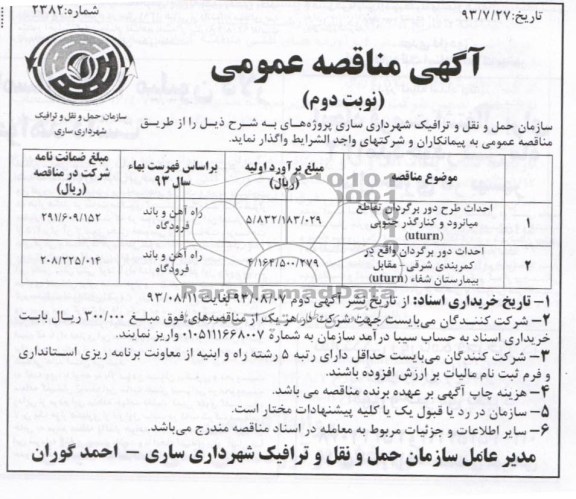 تاریخ: ۹۳/۷/۲۷
شماره: ۲۳۸۲
آگهی مناقصه عمومی
(نوبت دوم)
سازمان حمل و نقل و ترافیک
شهرداری ساری
سازمان حمل و نقل و ترافیک شهرداری ساری پروژه‌های به شرح ذیل را از طریق
مناقصه عمومی به پیمانکاران و شرکتهای واجد الشرایط واگذار نماید.
موضوع مناقصه
مبلغ برآورد اولیه (ریال)
براساس فهرست بهاء سال ۹۳
مبلغ ضمانت نامه شرکت در مناقصه (ریال)
۱ احداث طرح دور برگردان تقاطع میانرود و کنارگذر جنوبی (uturn) ۵/۸۳۲/۱۸۳/۰۲۹ راه آهن و باند فرودگاه ۲۹۱/۶۰۹/۱۵۲
۲ احداث دور برگردان واقع در کمربندی شرقی - مقابل بیمارستان شفاء (uturn) ۴/۱۶۴/۵۰۰/۲۷۹ راه آهن و باند فرودگاه ۲۰۸/۲۲۵/۰۱۴
ParsNamadData
۱- تاریخ خریداری اسناد: از تاریخ نشر آگهی دوم ۹۳/۰۸/۰۷ لغایت ۹۳/۰۸/۱۱
۲- شرکت کنندگان می‌بایست جهت شرکت در هر یک از مناقصه‌های فوق مبلغ ۳۰۰/۰۰۰ ریال بابت
خریداری اسناد به حساب سیبا درآمد سازمان به شماره ۰۱۰۵۱۱۱۶۶۸۰۰۷ واریز نمایند.
۳- شرکت کنندگان می‌بایست حداقل دارای رتبه ۵ رشته راه و ابنیه از معاونت برنامه ریزی استانداری
و فرم ثبت نام مالیات بر ارزش افزوده باشند.
۴- هزینه چاپ آگهی بر عهده برنده مناقصه می باشد.
۵- سازمان در رد یا قبول یک یا کلیه پیشنهادات مختار است.
۶- سایر اطلاعات و جزئیات مربوط به معامله در اسناد مناقصه مندرج می‌باشد.
مدیر عامل سازمان حمل و نقل و ترافیک شهرداری ساری – احمد گوران